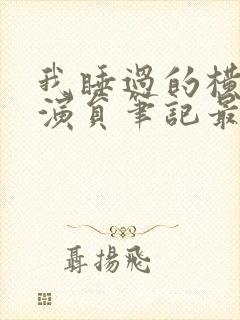 我睡過的橫
演員筆記最
聶揚飛